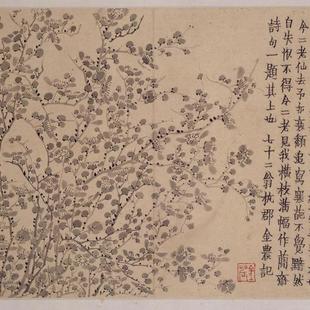 今二老仙去予亦衰頹追寫寒葩不覺黯然
自失恨不得令二老見我橫枝滿幅作齋
詩句一題其上也七十二翁杭郡金農記